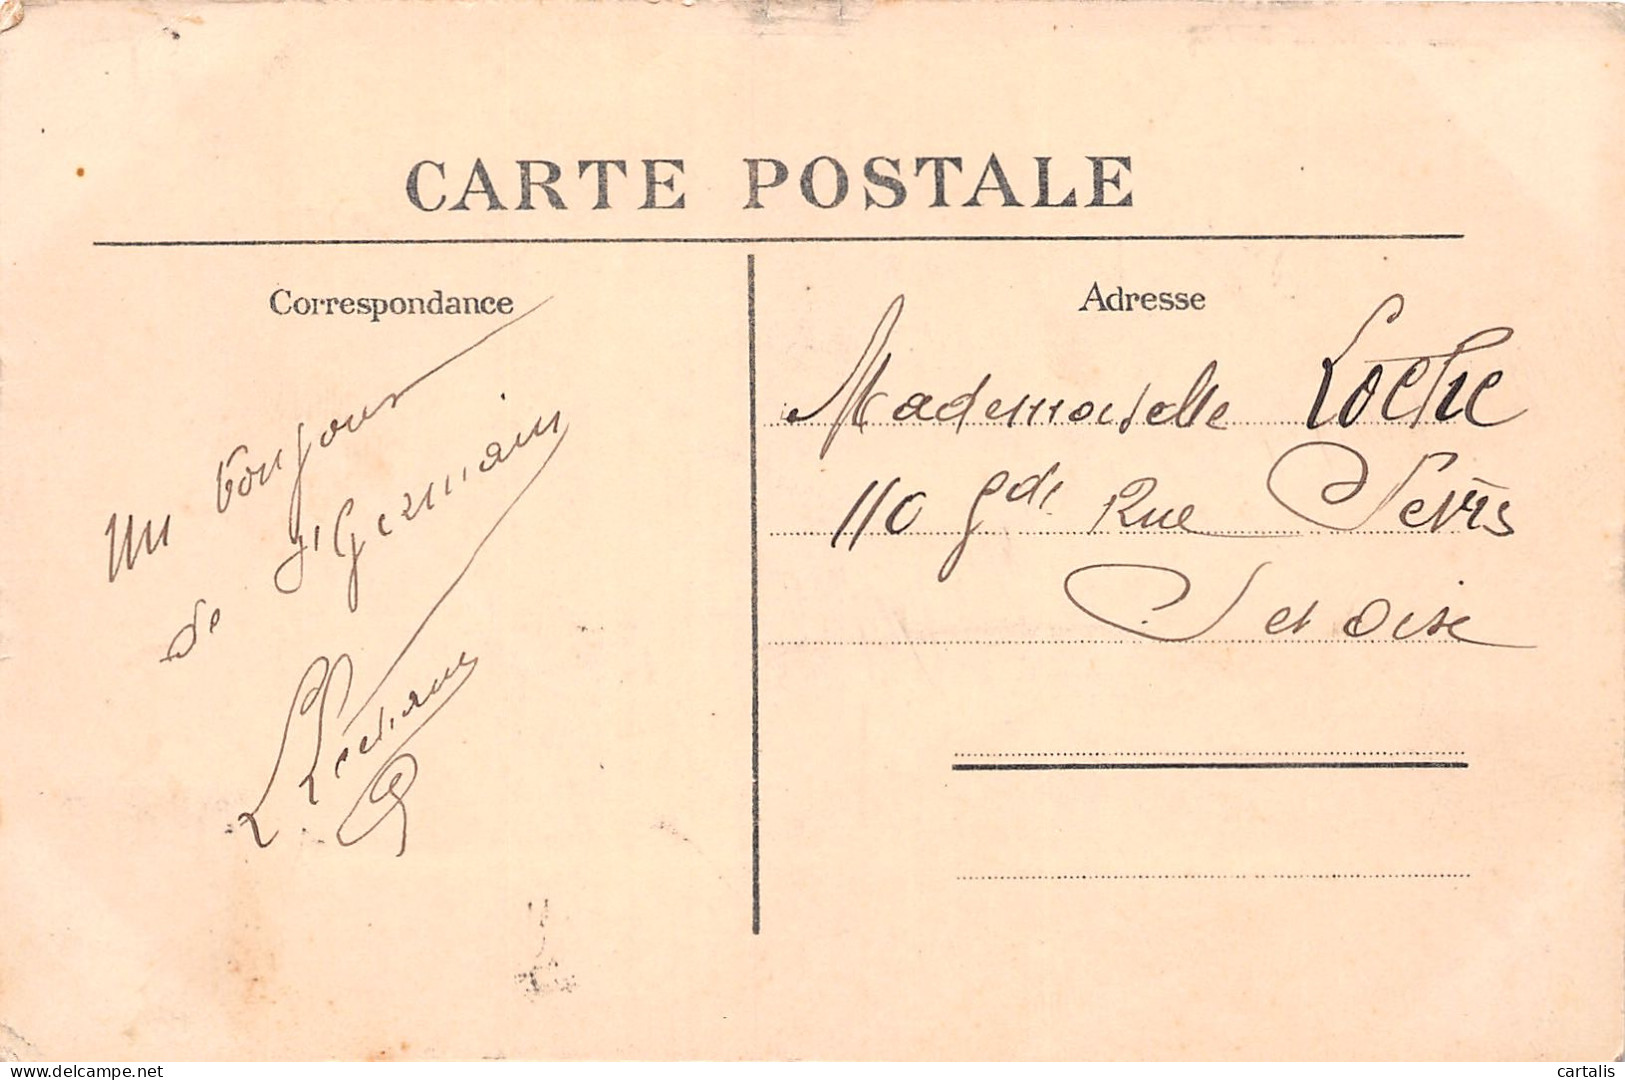 CARTE POSTALE
Correspondance
Un bonjour
de St Germain
Adresse
Mademoiselle Loche
110 gde Rue Sevres
S et Oise
delcampe.net
cartalis